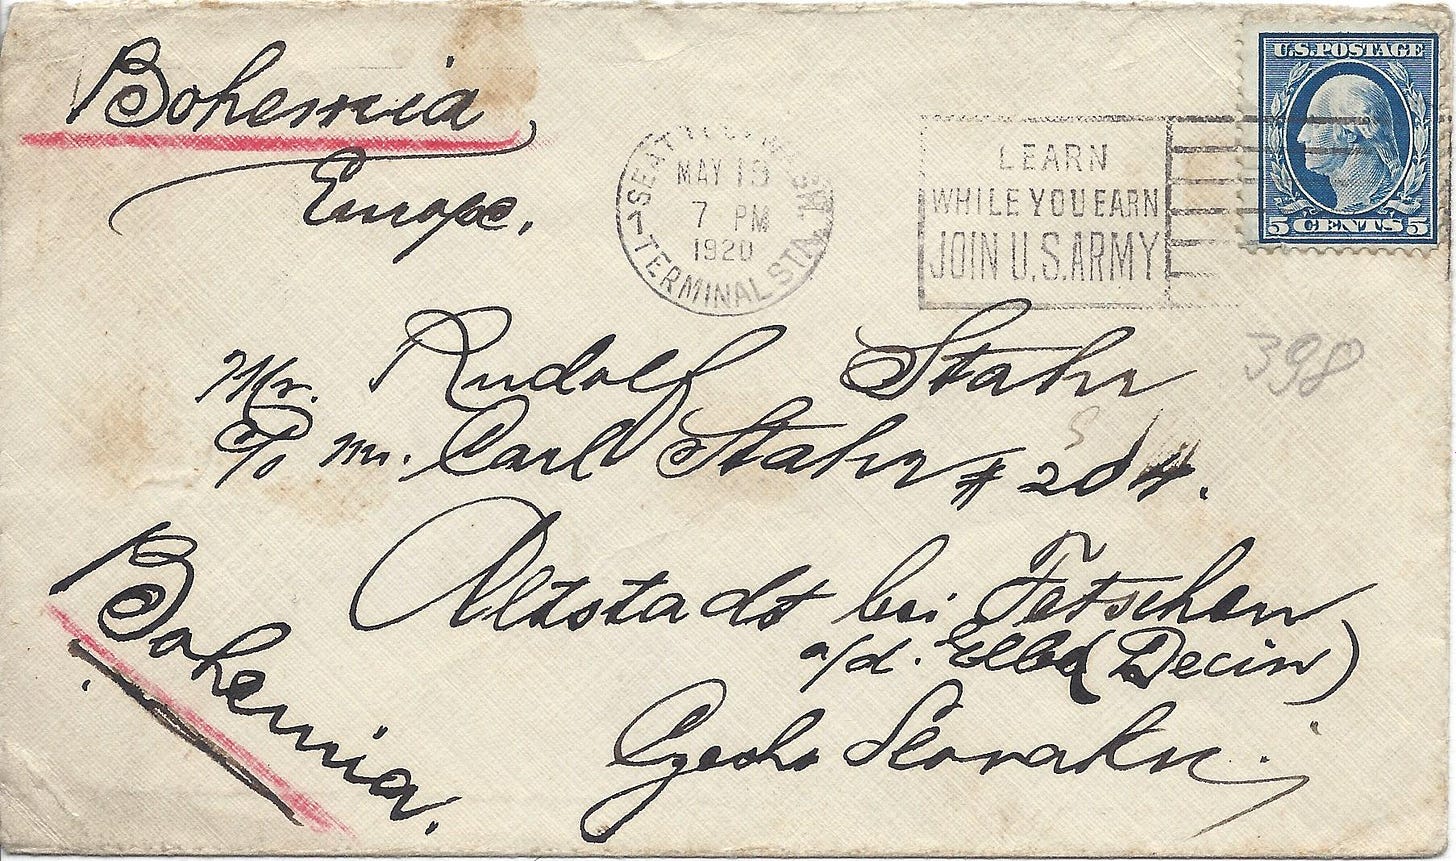 Bohemia
Europe.
SEATTLE, WASH.
MAY 19
7 PM
1920
TERMINAL STA.
LEARN
WHILE YOU EARN
JOIN U.S. ARMY
U.S. POSTAGE
5 CENTS 5
398
Mr. Rudolf Stahr
c/o Mr. Carl Stahr # 204.
Altstadt bei Tetschen
a/d. Elbe (Decin)
Czecho Slovaky.
Bohemia.